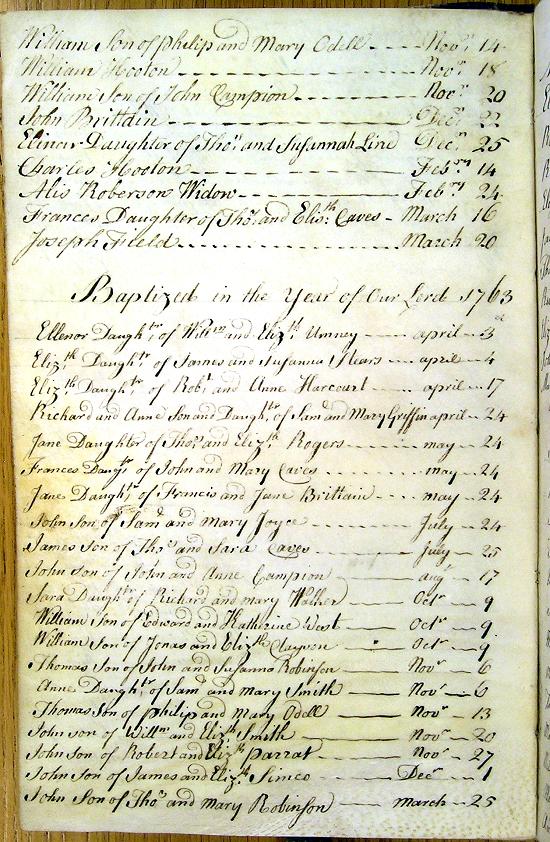 William Son of philip and Mary Odell - - - - Novr 14
William Hooton - - - - - - - - - - - - Novr 18
William Son of John Campion - - - - - - - Novr 20
John Brittain - - - - - - - - - - - - Decr 22
Elinor Daughter of Thos and Susannah Line Decr 25
Charles Hooton - - - - - - - - - - Febry 14
Alis Roberson Widow - - - - - - - - Febry 24
Frances Daughter of Thos and Elisth Caves - March 16
Joseph Field - - - - - - - - - - - - March 20
Baptized in the Year of Our Lord 1763
Ellenor Daughtr of Willm and Elizth Umney - - - april - 3
Elizth Daughtr of James and Susanna - - - april - 4
Elizth Daughtr of Robt and Anne Harcourt - - - april - 17
Richard and Anne Son and Daughtr of Saml and Mary Griffin april - 24
Jane Daughter of Thos and Elizth Rogers - - - may - 24
Frances Daugtr of John and Mary Caves - - - - - may - 24
Jane Daughtr of Francis and Jane Brittain - - - may - 24
John Son of Saml and Mary Joyce - - - - - July - 24
James Son of Thos and Sara Caves - - - July - 25
John Son of John and Anne Campion - - - augt - 17
Sara Daughtr of Richard and mary Walker - - - Octr - 9
William Son of Edward and Katherine West - - - Octr - 9
William Son of Jonas and Elizth Clayson - - - Octr - 9
Thomas Son of John and Susanna Robinson - - - Novr - 6
Anne Daughtr of Saml and mary Smith - - - Novr - 6
Thomas Son of philip and Mary Odell - - - Novr - 13
John Son of Willm and Elizth Smith - - - Novr - 20
John Son of Robert and Elizth Parrat - - - Novr - 27
John Son of James and Elizth Simco - - - Decr - 1
John Son of Thos and Mary Robinson - - - march - 25